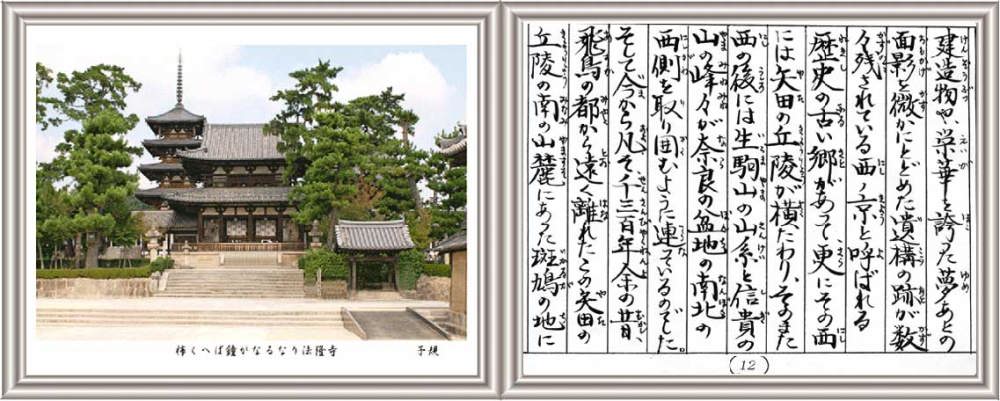 柿くへば鐘がなるなり法隆寺　子規
建造物や、栄華を誇った夢あとの
面影を微かにとどめた遺構の跡が数
々残されている西ノ京と呼ばれる
歴史の古い郷があって更にその西
には矢田の丘陵が横たわり、そのまた
西の後には生駒山の山系と信貴の
山の峰々が奈良の盆地の南北の
西側を取り囲むように連っているのでした。
そして今から凡そ千三百年余の昔、
飛鳥の都から遠く離れたこの矢田の
丘陵の南の山麓にあった斑鳩の地に
(12)